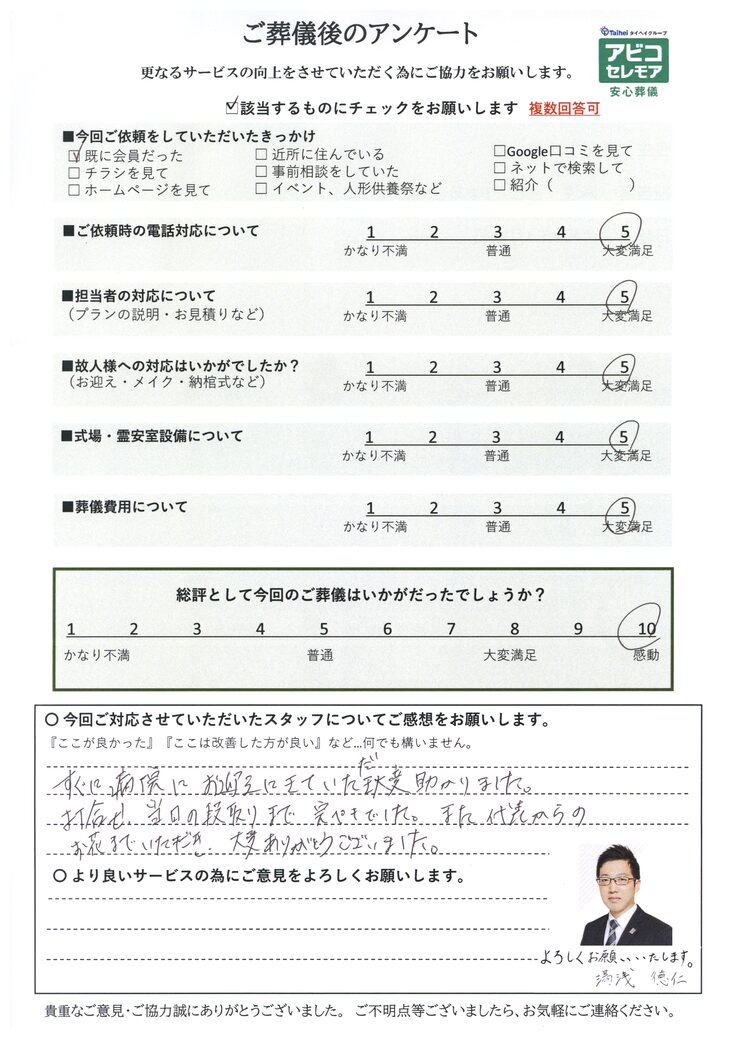 ご葬儀後のアンケート
Taihei タイヘイグループ
アビコ
セレモア
安心葬儀
更なるサービスの向上をさせていただく為にご協力をお願いします。
☑該当するものにチェックをお願いします 複数回答可
■今回ご依頼をしていただいたきっかけ
☑ 既に会員だった □ 近所に住んでいる □Google口コミを見て
□ チラシを見て □ 事前相談をしていた □ ネットで検索して
□ ホームページを見て □ イベント、人形供養祭など □ 紹介（ ）
■ご依頼時の電話対応について 1 2 3 4 5
かなり不満 普通 大変満足
■担当者の対応について 1 2 3 4 5
（プランの説明・お見積りなど） かなり不満 普通 大変満足
■故人様への対応はいかがでしたか？ 1 2 3 4 5
（お迎え・メイク・納棺式など） かなり不満 普通 大変満足
■式場・霊安室設備について 1 2 3 4 5
かなり不満 普通 大変満足
■葬儀費用について 1 2 3 4 5
かなり不満 普通 大変満足
総評として今回のご葬儀はいかがだったでしょうか？
1 2 3 4 5 6 7 8 9 10
かなり不満 普通 大変満足 感動
〇 今回ご対応させていただいたスタッフについてご感想をお願いします。
『ここが良かった』『ここは改善した方が良い』など…何でも構いません。
すぐに病院にお迎えに来ていただき大変助かりました。
打合せ、当日の段取りまで完ぺきでした。また代表からの
お花までいただき、大変ありがとうございました。
〇 より良いサービスの為にご意見をよろしくお願いします。
よろしくお願いいたします。
湯浅 徳仁
貴重なご意見・ご協力誠にありがとうございました。 ご不明点等ございましたら、お気軽にご連絡ください。